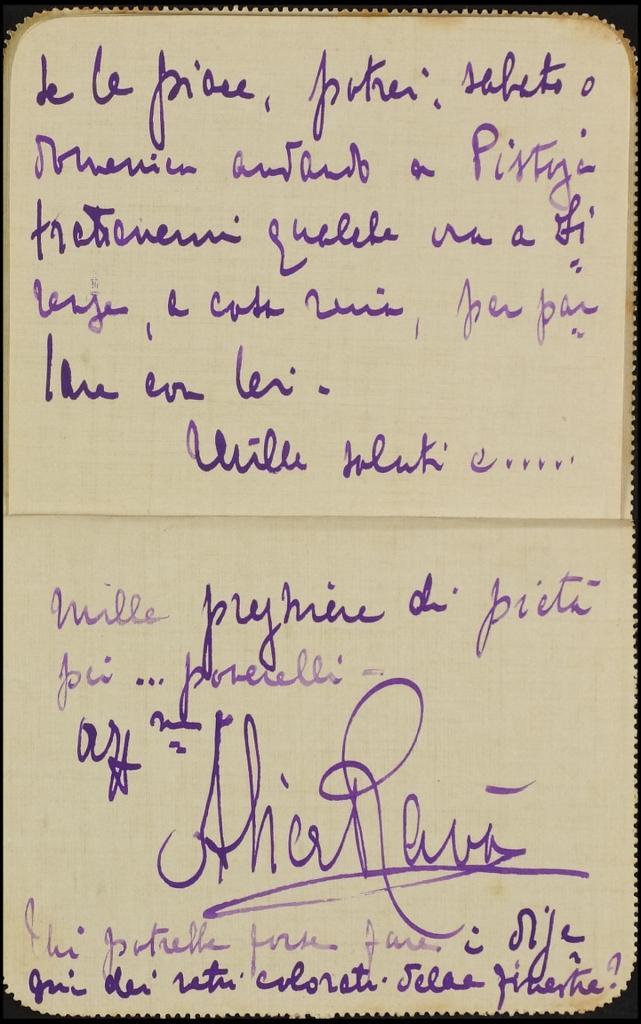 Se le piace, potrei, sabato o
domenica andando a Pistoja
trattenermi qualche ora a Fi=
renze, a cosa
, per par=
lare con lei.
Mille saluti e.....
mille preghiere di pietà
pei ... poverelli -
aff ma
Alice Ravà
Chi potrebbe forse fare i dise=
gni dei vetri colorati delle finestre?